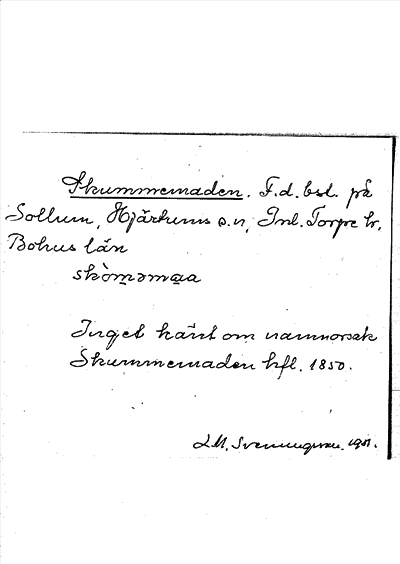 Skummemaden. F.d. bst. på
Sollum, Hjärtums s:n, Inl. Torpe hr,
Bohus län
skòm̱əma̱a
Inget känt om namnorsak
Skummemaden hfl. 1850.
L M. Svenungsson. 1951.